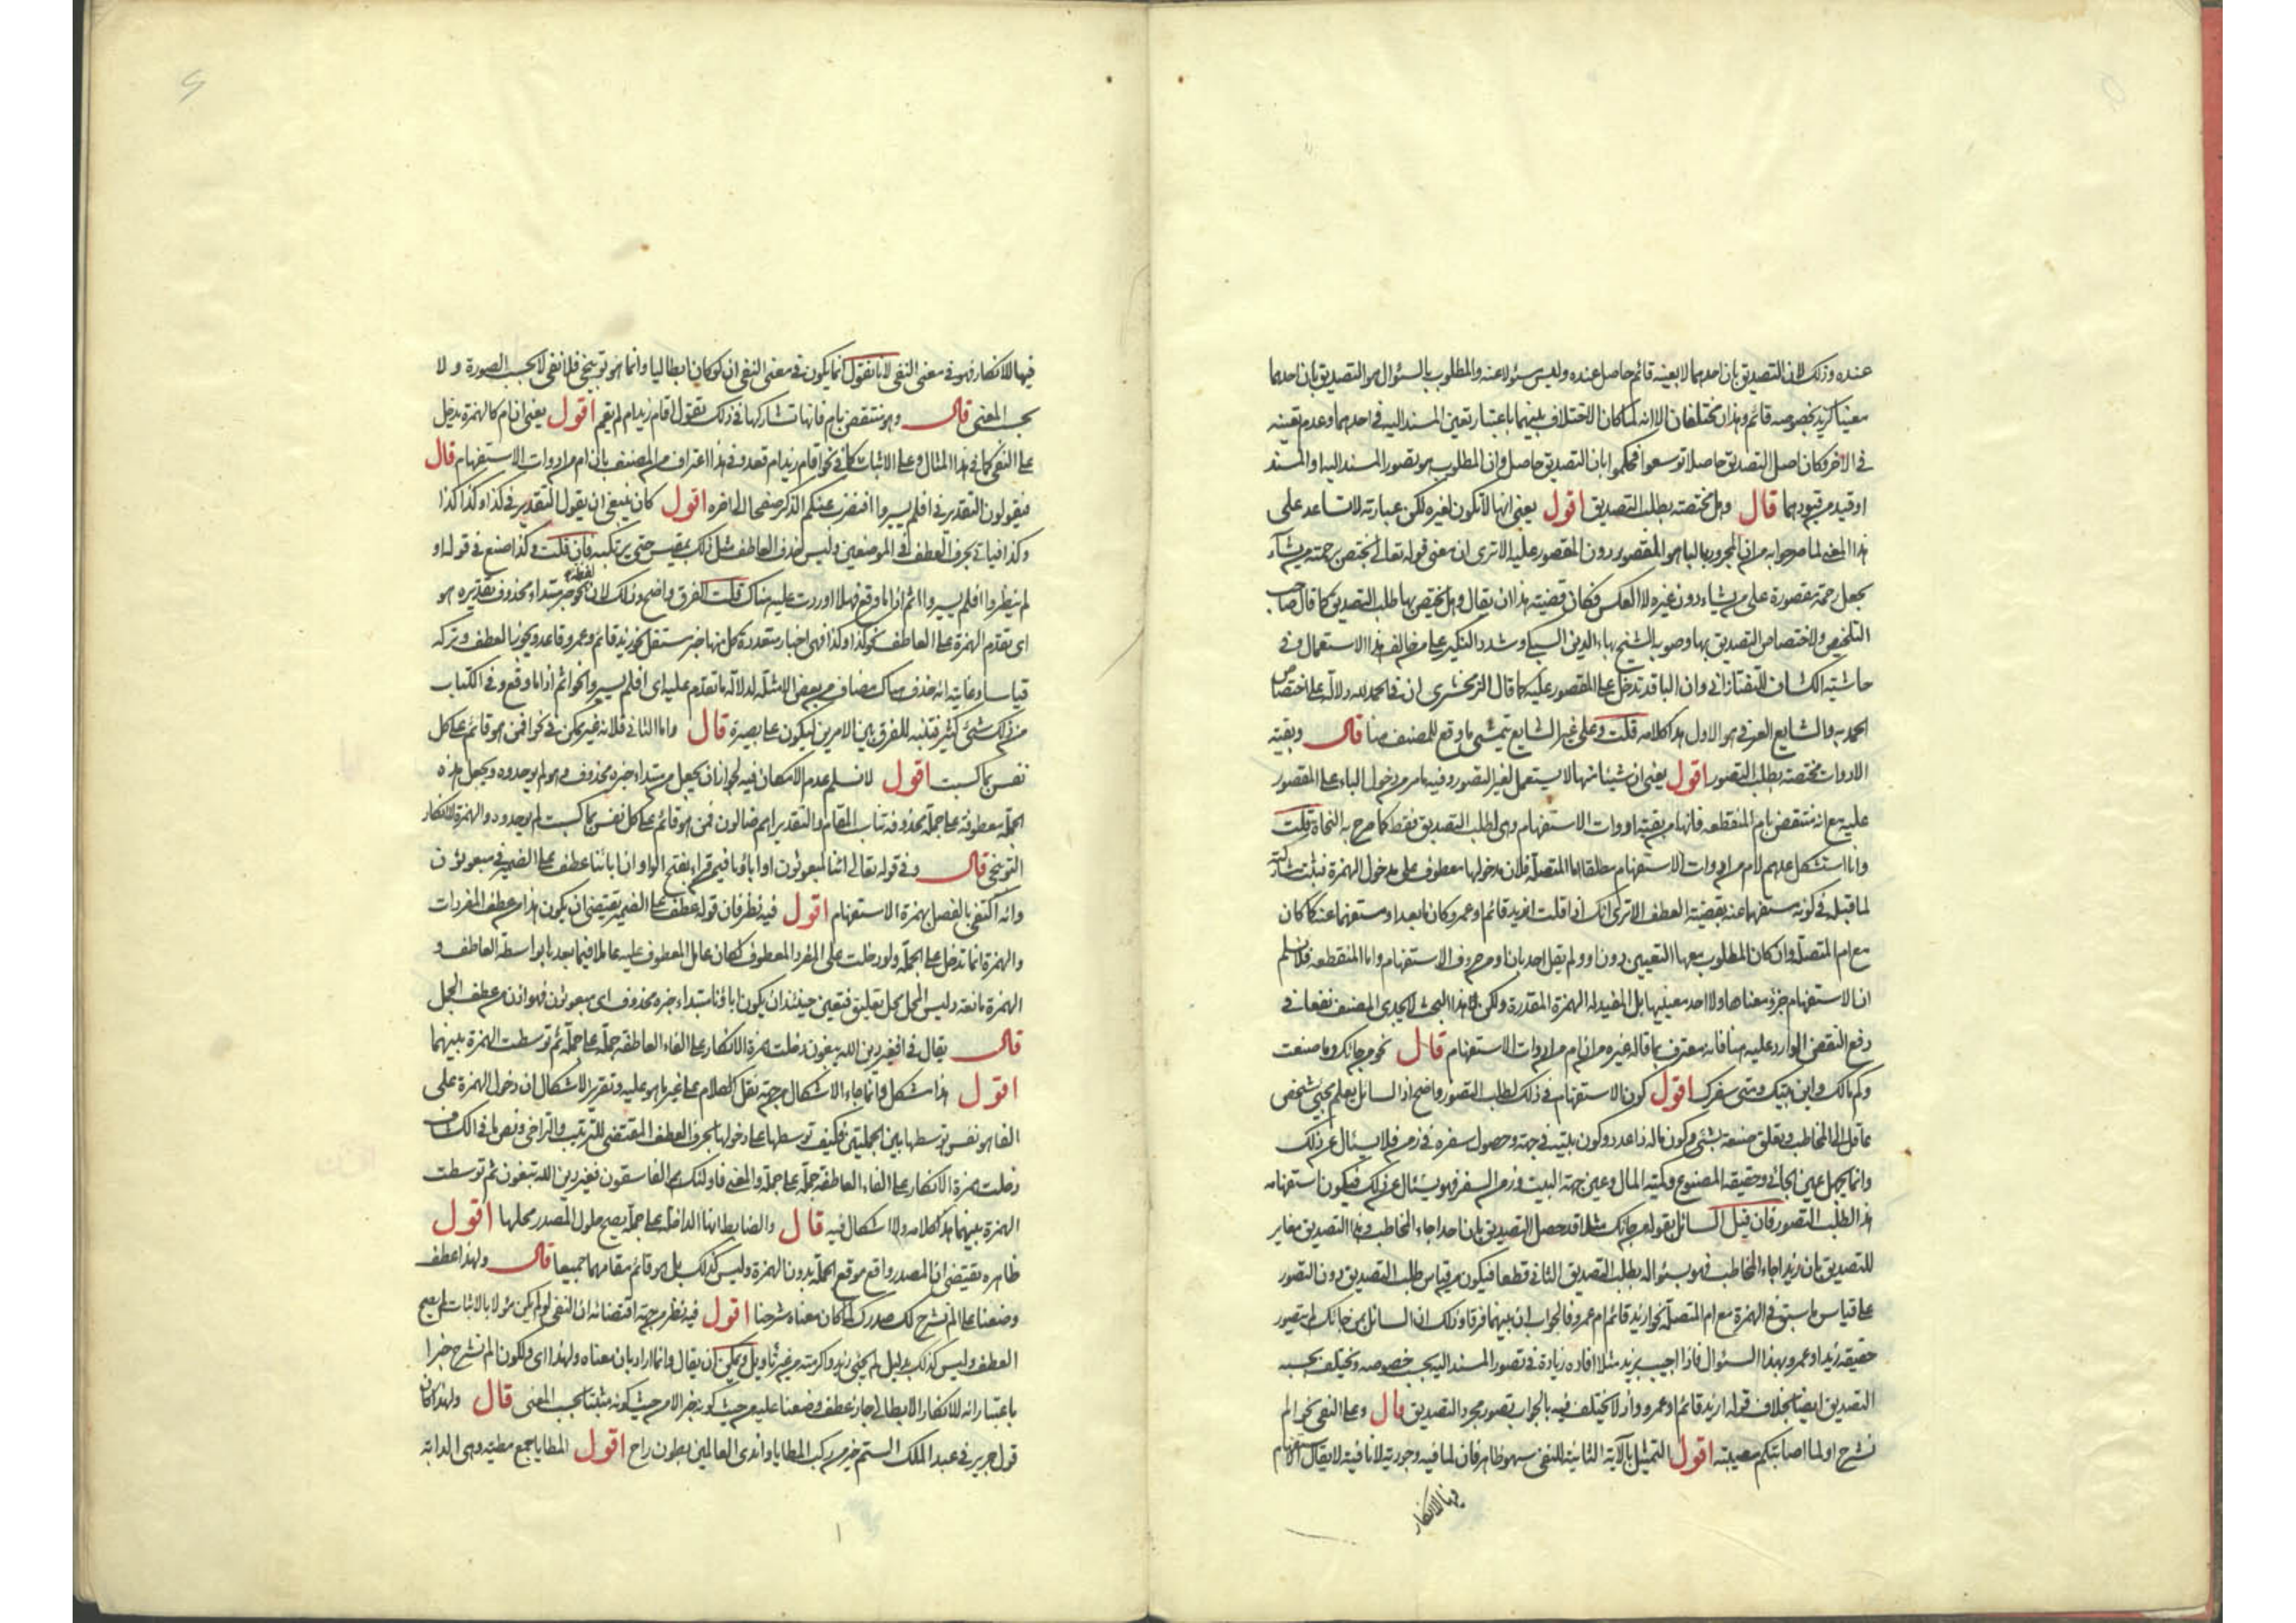 عنده وذلك لان التصديق بان احدهما لا بعينه قائم حاصل عنده وليس مسئولا عنه والمطلوب بالسئوال هو التصديق بان احدهما
معينا كزيد بخصوصه قائم وهذان مختلفان الا انه لما كان الاختلاف بينهما باعتبار تعين المسند اليه في احدهما وعدم تعينه
في الاخر وكان اصل التصديق حاصلا توسعوا فحكموا بان التصديق حاصل وان المطلوب هو تصور المسند اليه او المسند
او قيد من قيودهما قال وهل مختصة بطلب التصديق اقول يعني انها لا تكون لغيره لكن عبارته لا تساعد على
هذا المعنى لما صرحوا به من ان المجرور بالبا هو المقصور دون المقصور عليه الا ترى ان معنى قوله تعالى يختص برحمته من يشآء
يجعل رحمته مقصورة على من يشاء دون غيره لا العكس فكان قضيته هذا ان يقال وهل يختص بها طلب التصديق كما قال صاحب
التلخيص ولاختصاص التصديق بها وصوبه الشيخ بهاء الدين السبكي وشدد النكير على من خالف هذا الاستعمال وفي
حاشية الكشاف للتفتازاني وان البا قد تدخل على المقصور عليه كما قال الزمخشري ان في الحمد لله دلالة على اختصاص
الحمد به والشايع العرفي هو الاول هذا كلامه قلت وعلى غير الشايع يتمشى ما وقع للمصنف هنا قال وبقية
الادوات مختصة بطلب التصور اقول يعني ان شيئا منها لا يستعمل لغير التصور وفيه ما مر من دخول الباء على المقصور
عليه مع انه منتقض بام المنقطعة فانها من بقية ادوات الاستفهام وهي لطلب التصديق فقط كما صرح به النحاة قلت
وانا استشكل عدهم لام من ادوات الاستفهام مطلقا اما المتصلة فلان مدخولها معطوف على مدخول الهمزة فثبت مشاركته
لما قبله في كونه مستفهما عنه بقضية العطف الا ترى انك اذا قلت ازيد قائم او عمرو كان ما بعد او مستفهما عنه كما كان
مع ام المتصلة وان كان المطلوب معها التعيين دون او ولم يقل احد بان او من حروف الاستفهام واما المنقطعة فلا نسلم
ان الاستفهام جزؤ معناها ولا احد معنييها بل المفيد له الهمزة المقدرة ولكن هذا البحث لا يجدي المصنف نفعا في
دفع النقض الوارد عليه هنا فانه معترف بما قاله غيره من ان ام من ادوات الاستفهام قال نحو من جائك وما صنعت
وكم مالك واين بيتك ومتى سفرك اقول كون الاستفهام في ذلك لطلب التصور واضح اذ السائل يعلم مجيئ شخص
عاقل الى المخاطب وتعلق صنعه بشئ وكون ماله ذا عدد وكون بيته في جهة وحصول سفره في زمن فلا يسئال عن ذلك
وانما يجهل عين الجائي وحقيقة المصنوع وكمية المال وعين جهة البيت وزمن السفر فهو يسئال عن ذلك فيكون استفهامه
هذا لطلب التصور فان قيل السائل بقوله من جائك مثلا قد حصل التصديق بان احدا جاء المخاطب وهذا التصديق مغاير
للتصديق بان زيدا جاء المخاطب فهو بسئواله يطلب التصديق الثاني قطعا فيكون من قياس طلب التصديق دون التصور
على قياس ما سبق في الهمزة مع ام المتصلة نحو ازيد قائم ام عمرو فالجواب ان بينهما فرقا وذلك ان السائل بمن جائك لم يتصور
حقيقة زيد او عمرو بهذا السئوال فاذا اجيب بزيد مثلا افاده زيادة في تصور المسند اليه بحسب خصوصه ويختلف بحسبه
التصديق ايضا بخلاف قوله ازيد قائم او عمرو واذ لا يختلف فيه بالجواب تصور مجرد التصديق قال وعلى النفي نحو الم
نشرح اولما اصابتكم مصيبة اقول التمثيل بالآية الثانية للنفي سهو ظاهر فان لما فيه وجودية لا نافية لا يقال الاستفهام
فيها للانكار
فيها للانكار فهو في معنى النفي لانا نقول انما يكون في معنى النفي ان لو كان ابطاليا وانما هو توبيخي فلا نفي لا بحسب الصورة ولا
بحسب المعنى قال وهو منتقض بام فانها تشاركها في ذلك تقول اقام زيد ام لم يقم اقول يعني ان ام كالهمزة يدخل
على النفي كما في هذا المثال وعلى الاثبات كما في نحو اقام زيد ام قعد وفي هذا اعتراف من المصنف بان ام من ادوات الاستفهام قال
فيقولون التقدير في افلم يسيروا افنضرب عنكم الذكر صفحا الى اخره اقول كان ينبغي ان يقول التقدير في كذا وكذا كذا
وكذا فياتي بحرف العطف في الموضعين وليس حذف العاطف مثل ذلك بمقيس حتى يرتكبه فان قلت وكذا صنع في قوله او
لم ينظروا افلم يسيروا اثم اذا ما وقع فهلا اوردت عليه هناك قلت الفرق واضح وذلك لان لفظة نحو خبر مبتداء محذوف تقديره هو
اى تقدم الهمزة على العاطف نحو كذا وكذا فهي اخبار متعددة كل منها خبر مستقل نحو زيد قائم وعمرو قاعد ويجوز العطف وتركه
قياسا وغايته انه حذف هناك مضاف من بعض الامثلة لدلالة ما تقدم عليه اى افلم يسيروا نحو اثم اذا ما وقع وفي الكتاب
من ذلك شئ كثير فتنبه للفرق بين الامرين ليكون على بصيرة قال واما الثاني فلانه غير ممكن في نحو افمن هو قائم على كل
نفس بما كسبت اقول لا نسلم عدم الامكان فيه لجواز ان يجعل من مبتداء خبره محذوف وهو لم يوحدوه ويجعل هذه
الجملة معطوفة على جملة محذوفة تناسب المقام والتقدير اهم ضالون فمن هو قائم على كل نفس بما كسبت لم يوحدوه والهمزة للانكار
التوبيخي قال وفي قوله تعالى ائنا لمبعوثون او اباؤنا فيمن قراء بفتح الواو ان ابائنا عطف على الضمير في مبعوثون
وانه اكتفي بالفصل بهمزة الاستفهام اقول فيه نظر فان قوله عطف على الضمير يقتضي ان يكون هذا من عطف المفردات
والهمزة انما تدخل على الجملة ولو دخلت على المفرد المعطوف لكان عامل المعطوف عليه عاملا فيما بعدها بواسطة العاطف و
الهمزة مانعة وليس المحل محل تعليق فتعين حينئذ ان يكون اباؤنا مبتداء خبره محذوف اى مبعوثون فهو اذن من عطف الجمل
قال يقال في افغير دين الله يبغون دخلت همزة الانكار على الفاء العاطفة جملة على جملة ثم توسطت الهمزة بينهما
اقول هذا مشكل وانما جاء الاشكال من جهة نقل الكلام على غير ما هو عليه وتقرير الاشكال ان دخول الهمزة على
الفا هو نفس توسطها بين الجملتين فكيف توسطها على دخولها بحرف العطف المقتضي للترتيب والتراخي ونص ما في الكشاف
دخلت همزة الانكار على الفاء العاطفة جملة على جملة والمعنى فاولئك هم الفاسقون فغير دين الله يبغون ثم توسطت
الهمزة بينهما هذا كلامه ولا اشكال فيه قال والضابط انها الداخلة على جملة يصح حلول المصدر محلها اقول
ظاهره يقتضي ان المصدر واقع موقع الجملة بدون الهمزة وليس كذلك بل هو قائم مقامهما جميعا قال ولهذا عطف
وضعنا على الم نشرح لك صدرك لما كان معناه شرحنا اقول فيه نظر من جهة اقتضائه ان النفي لو لم يكن مئولا بالاثبات لم يصح
العطف وليس كذلك بدليل لم يجئني زيد واكرمته من غير تأويل ويمكن ان يقال وانما اراد بان معناه ولهذا اى ولكون الم نشرح خبرا
باعتبار انه للانكار الابطالي جاز عطف وضعنا عليه من حيث كونه خبرا لا من حيث كونه مثبتا بحسب المعنى قال ولهذا كان
قول جرير في عبد الملك الستم خير من ركب المطايا واندى العالمين بطون راح اقول المطايا جمع مطية وهي الدابة